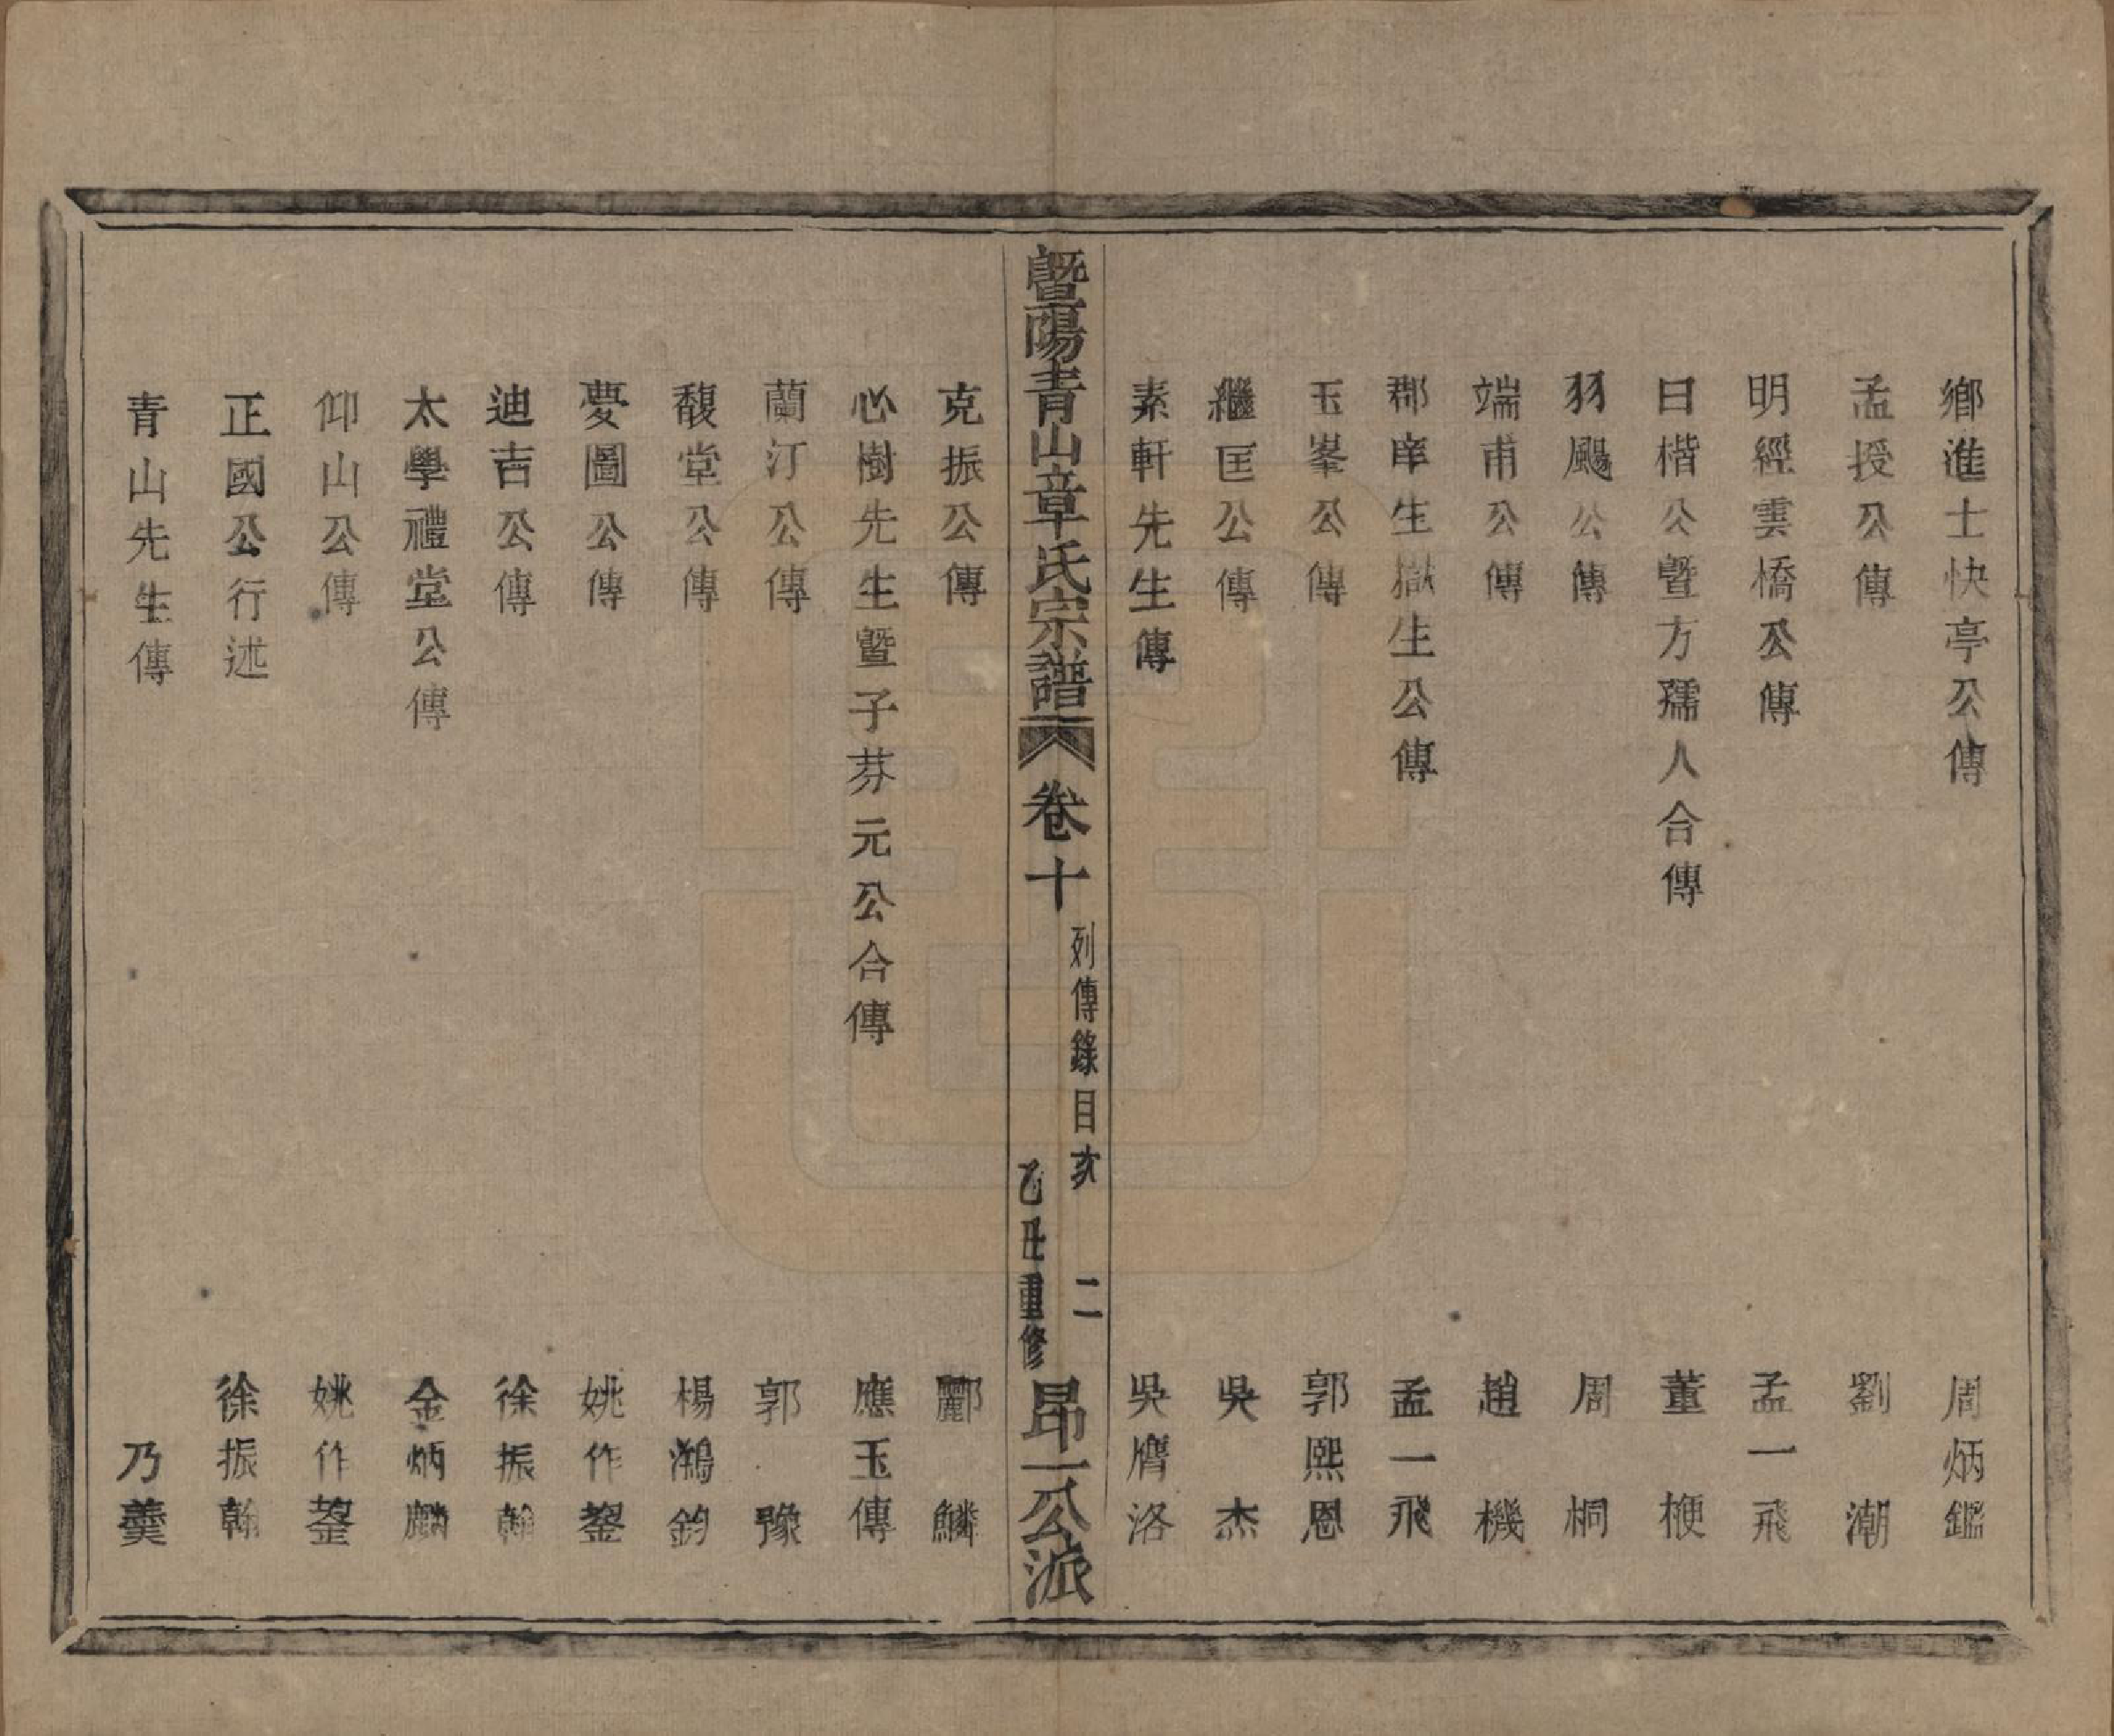 鄉進士快亭公傳　周炳鑑
孟授公傳　劉潮
明經雲橋公傳　孟一飛
日楷公暨方孺人合傳　董梗
羽颺公傳　周桐
端甫公傳　趙機
郡庠生嶽生公傳　孟一飛
玉峯公傳　郭熙恩
繼匡公傳　吳杰
素軒先生傳　吳膺洛
暨陽青山章氏宗譜　卷十　列傳錄目亥　二　乙丑重修　昂一公派
克振公傳　酈鱗
心樹先生暨子芬元公合傳　應玉傳
蘭汀公傳　郭豫
馥堂公傳　楊鴻鈞
夢圖公傳　姚作鋆
迪吉公傳　徐振翰
太學禮堂公傳　金炳麟
仰山公傳　姚作鋆
正國公行述　徐振翰
青山先生傳　乃羹